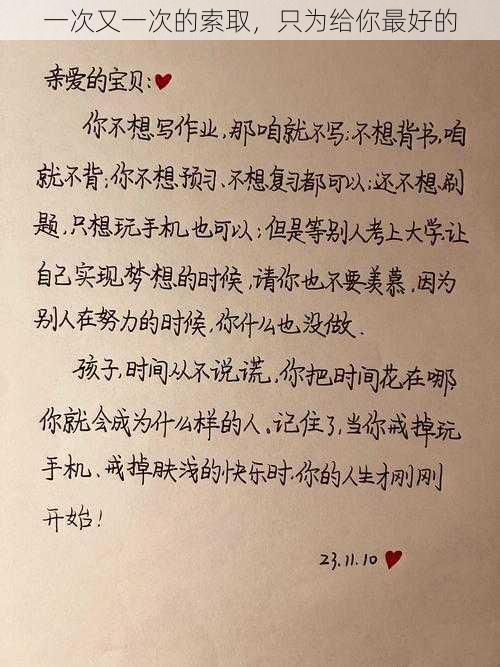 一次又一次的索取，只为给你最好的
亲爱的宝贝:
你不想写作业,那咱就不写;不想背书,咱
就不背;你不想预习、不想复习都可以;还不想刷
题,只想玩手机也可以;但是等别人考上大学让
自己实现梦想的时候,请你也不要羡慕,因为
别人在努力的时候,你什么也没做.
孩子,时间从不说谎,你把时间花在哪
你就会成为什么样的人。记住了,当你戒掉玩
手机、戒掉肤浅的快乐时.你的人生才刚刚
开始!
23.11.10